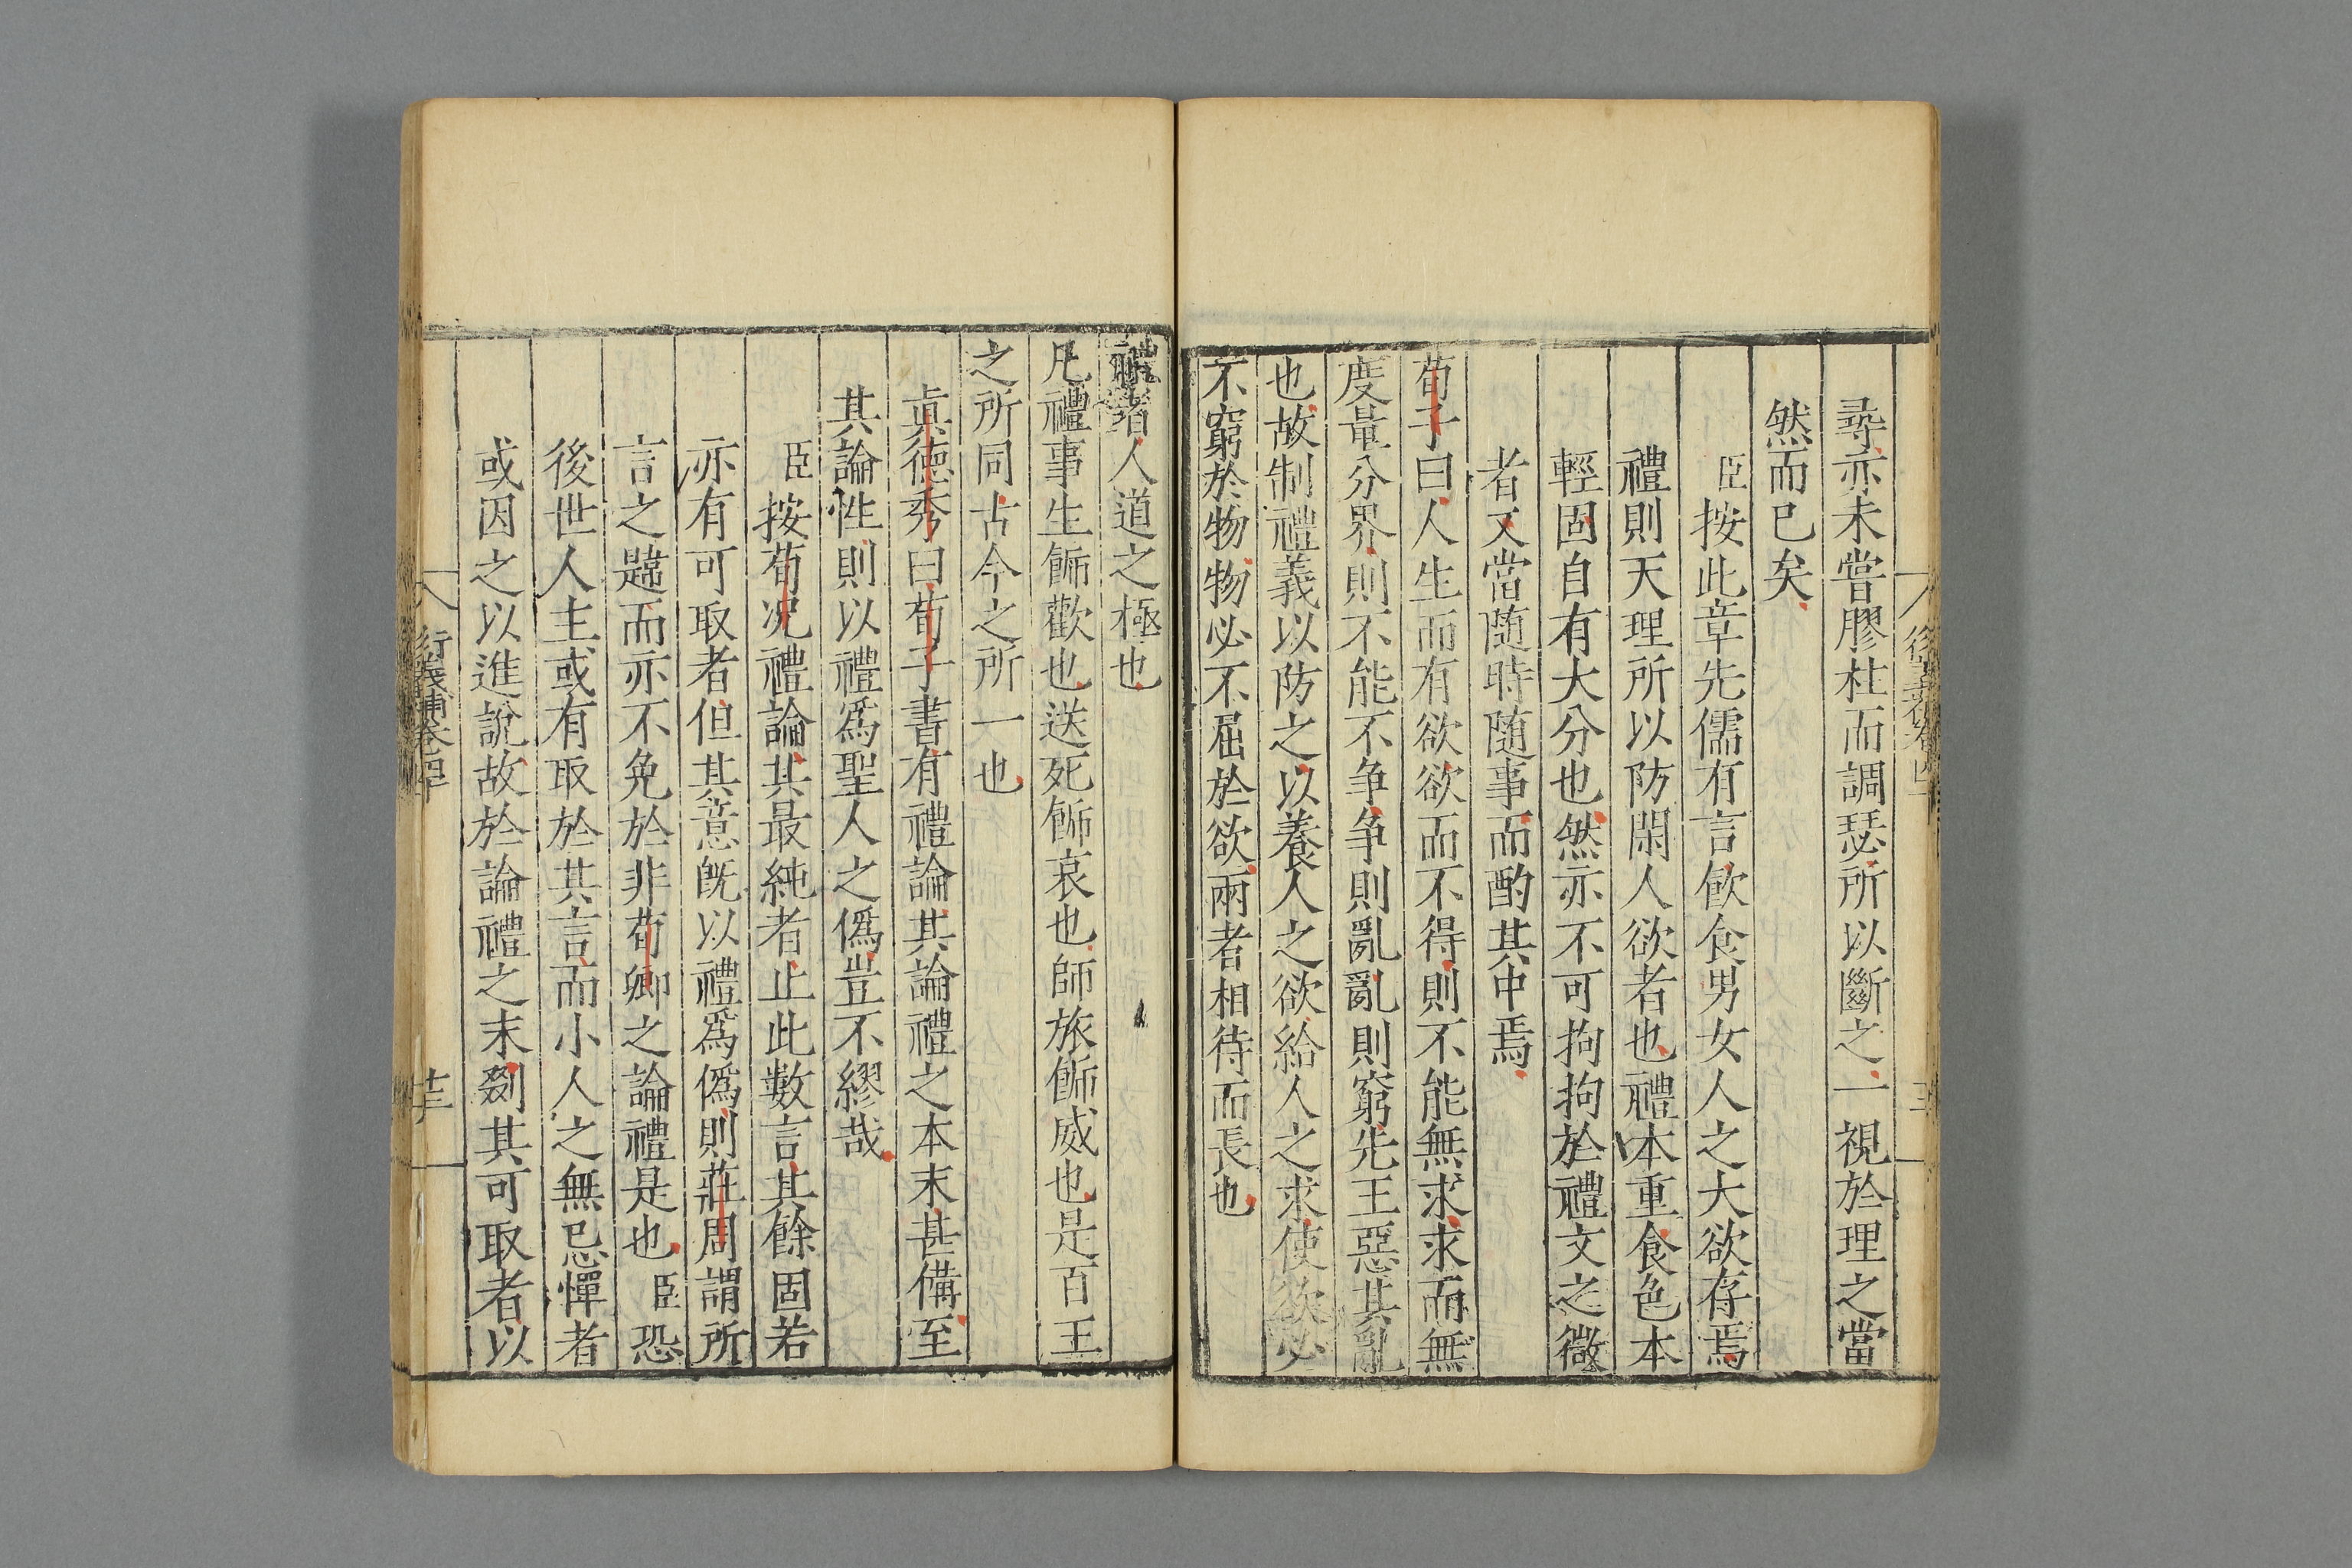 尋亦未嘗膠柱而調瑟所以斷之一視於理之當
然而已矣
臣按此章先儒有言飲食男女人之大欲存焉
禮則天理所以防閑人欲者也禮本重食色本
輕固自有大分也然亦不可拘拘於禮文之微
者又當隨時隨事而酌其中焉
荀子曰人生而有欲欲而不得則不能無求求而無
度量分界則不能不争争則亂亂則窮先王惡其亂
也故制禮義以防之以養人之欲給人之求使欲必
不窮於物物必不屈於欲兩者相待而長也
禮者人道之極也
凡禮事生飾歡也送死飾哀也師旅飾威也是百王
之所同古今之所一也
真德秀曰荀子書有禮論其論禮之本末甚備至
其論性則以禮爲聖人之僞豈不繆哉
臣按荀况禮論其最純者止此數言其餘固若
亦有可取者但其意既以禮爲僞則莊周謂所
言之韙而亦不免於非荀卿之論禮是也臣恐
後世人主或有取於其言而小人之無忌憚者
或因之以進說故於論禮之末劄其可取者以
衍義補卷四十
十三